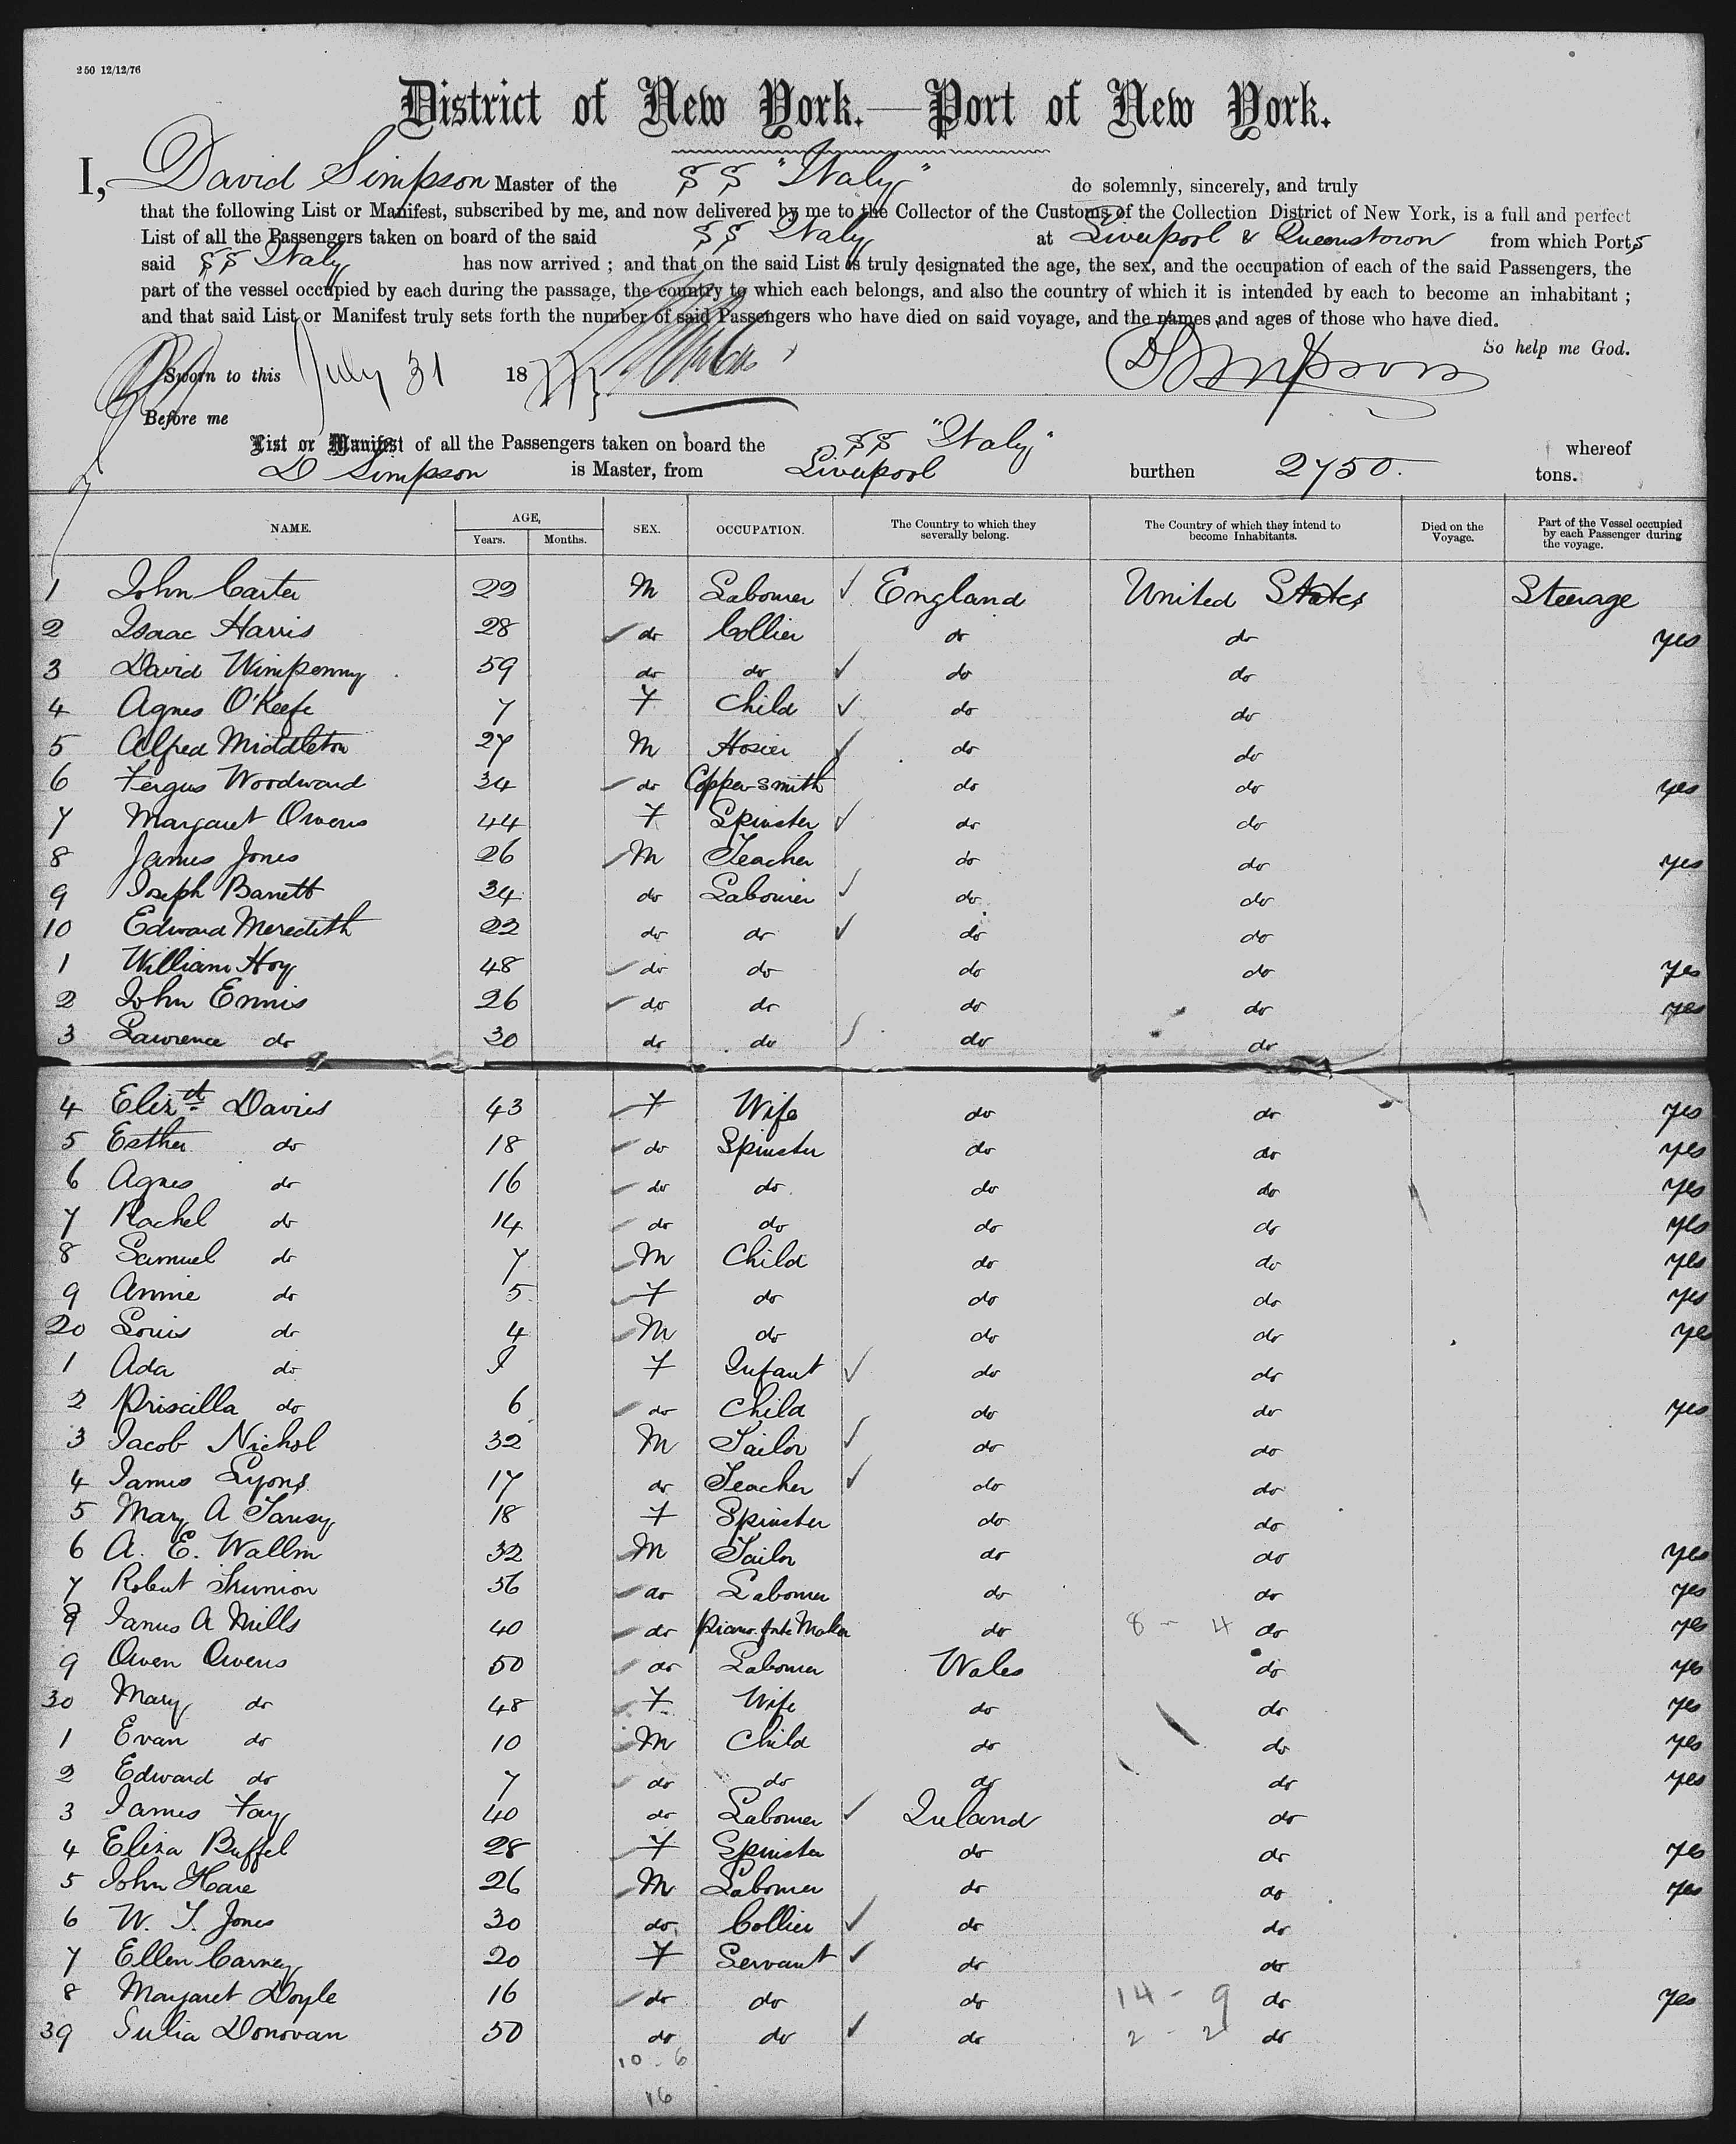 250 12/12/76
District of New York.—Port of New York.
I, David Simpson Master of the SS "Italy" do solemnly, sincerely, and truly
that the following List or Manifest, subscribed by me, and now delivered by me to the Collector of the Customs of the Collection District of New York, is a full and perfect
List of all the Passengers taken on board of the said SS Italy at Liverpool & Queenstown from which Ports
said SS Italy has now arrived ; and that on the said List is truly designated the age, the sex, and the occupation of each of the said Passengers, the
part of the vessel occupied by each during the passage, the country to which each belongs, and also the country of which it is intended by each to become an inhabitant ;
and that said List or Manifest truly sets forth the number of said Passengers who have died on said voyage, and the names and ages of those who have died.
So help me God.
Sworn to this July 31 1877 DSimpson
Before me
List or Manifest of all the Passengers taken on board the SS "Italy" whereof
D Simpson is Master, from Liverpool burthen 2750. tons.
NAME. AGE, Years. Months. SEX. OCCUPATION. The Country to which they severally belong. The Country of which they intend to become Inhabitants. Died on the Voyage. Part of the Vessel occupied by each Passenger during the voyage.
1 John Carter 22 M Labourer ✓ England United States Steerage
2 Isaac Harris 28 ✓ do Collier do do yes
3 David Wimpenny 59 do do ✓ do do
4 Agnes O'Keefe 7 F Child ✓ do do
5 Alfred Middleton 27 M Hosier ✓ do do
6 Fergus Woodward 34 ✓ do Coppersmith do do yes
7 Margaret Owens 44 F Spinster ✓ do do
8 James Jones 26 ✓ M Teacher do do yes
9 Joseph Barrett 34 do Labourer ✓ do do
10 Edward Meredith 22 do do ✓ do do
1 William Hoy 48 ✓ do do do do yes
2 John Ennis 26 ✓ do do do do yes
3 Lawrence do 30 do do ✓ do do
4 Elizth Davies 43 ✓ F Wife do do yes
5 Esther do 18 ✓ do Spinster do do yes
6 Agnes do 16 ✓ do do do do yes
7 Rachel do 14 ✓ do do do do yes
8 Samuel do 7 ✓ M Child do do yes
9 Annie do 5 ✓ F do do do yes
20 Louis do 4 ✓ M do do do yes
1 Ada do I F Infant ✓ do do
2 Priscilla do 6 ✓ do Child do do yes
3 Jacob Nichol 32 M Tailor ✓ do do
4 James Lyons 17 do Teacher ✓ do do
5 Mary A Tansy 18 F Spinster do do
6 A. E. Wallin 32 ✓ M Tailor do do yes
7 Robert 56 ✓ do Labourer do do yes
8 James A Mills 40 ✓ do Piano forte Maker do 8 - 4 do yes
9 Owen Owens 50 ✓ do Labourer Wales do yes
30 Mary do 48 ✓ F Wife do do yes
1 Evan do 10 ✓ M Child do do yes
2 Edward do 7 ✓ do do do do yes
3 James Fay 40 do Labourer ✓ Ireland do
4 Eliza Buffel 28 ✓ F Spinster do do yes
5 John Hare 26 ✓ M Labourer do do yes
6 W. J. Jones 30 do Collier ✓ do do
7 Ellen Carney 20 F Servant ✓ do do
8 Margaret Doyle 16 ✓ do do do 14 - 9 do yes
39 Julia Donovan 50 do do ✓ do 2 - 2 do
10 - 6
16